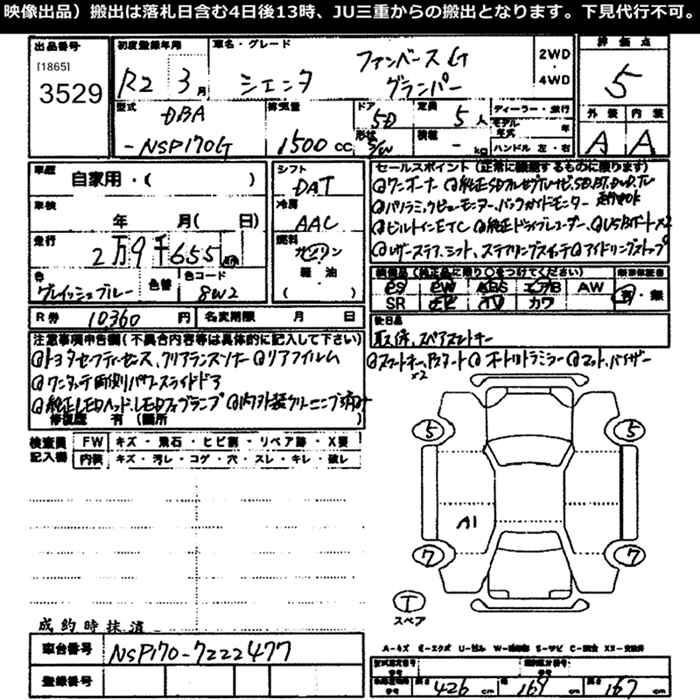 映像出品）搬出は落札日含む4日後13時、JU三重からの搬出となります。下見代行不可。
出品番号 初度登録年月 車名・グレード 評価点
[1865]
3529
R2 3月 シエンタ ファンベースG グランパー 2WD・4WD 5
型式 DBA
-NSP170G
排気量 1500 cc
ドア 5D
形状 S/W
定員 5人
積載 - kg
ディーラー・並行
モデル年式 年
ハンドル 左・右
外装 A 内装 A
車歴 自家用・( )
車検 年 月( 日)
走行 2万9千655
色 グレイッシュブルー 色替 色コード 8W2
シフト DAT
冷房 AAC
燃料 ガソリン
軽油
( )
セールスポイント(正常に機能するものに限ります)
ワンオーナー
パノラミックビューモニター、バックガイドモニター
ビルトインETC 純正ドライブレコーダー USBポート×2
レザーステア、シフト、ステアリングスイッチ アイドリングストップ
装備品(純正品に限り○をつけてください)
PS PW ABS エアB AW
SR TV カワ
有・無
R券 10360円 名変期限 月 日
後日品
取説、スペアスマートキー
注意事項申告欄(不具合内容等は具体的に記入して下さい)
トヨタセーフティセンス、クリアランスソナー リアフィルム
ワンタッチ両側パワースライドドア
純正LEDヘッド、LEDフォグランプ 内外装クリーニング済
修復歴 有(箇所
スマートキー、Pスタート オートリトラミラー マット、バイザー
×2
検査員記入欄 FW キズ・飛石・ヒビ割・リペア跡・X要
内装 キズ・汚レ・コゲ・穴・スレ・キレ・破レ
5 5
A1
7 7
T
スペア
成約時抹消
車台番号 NSP170-7222477
登録番号
A-キズ E-エクボ U-ヒル W-補修跡 S-サビ C-腐食 XX-交換済
長さ 426 cm 幅 169 cm 高さ 167 cm